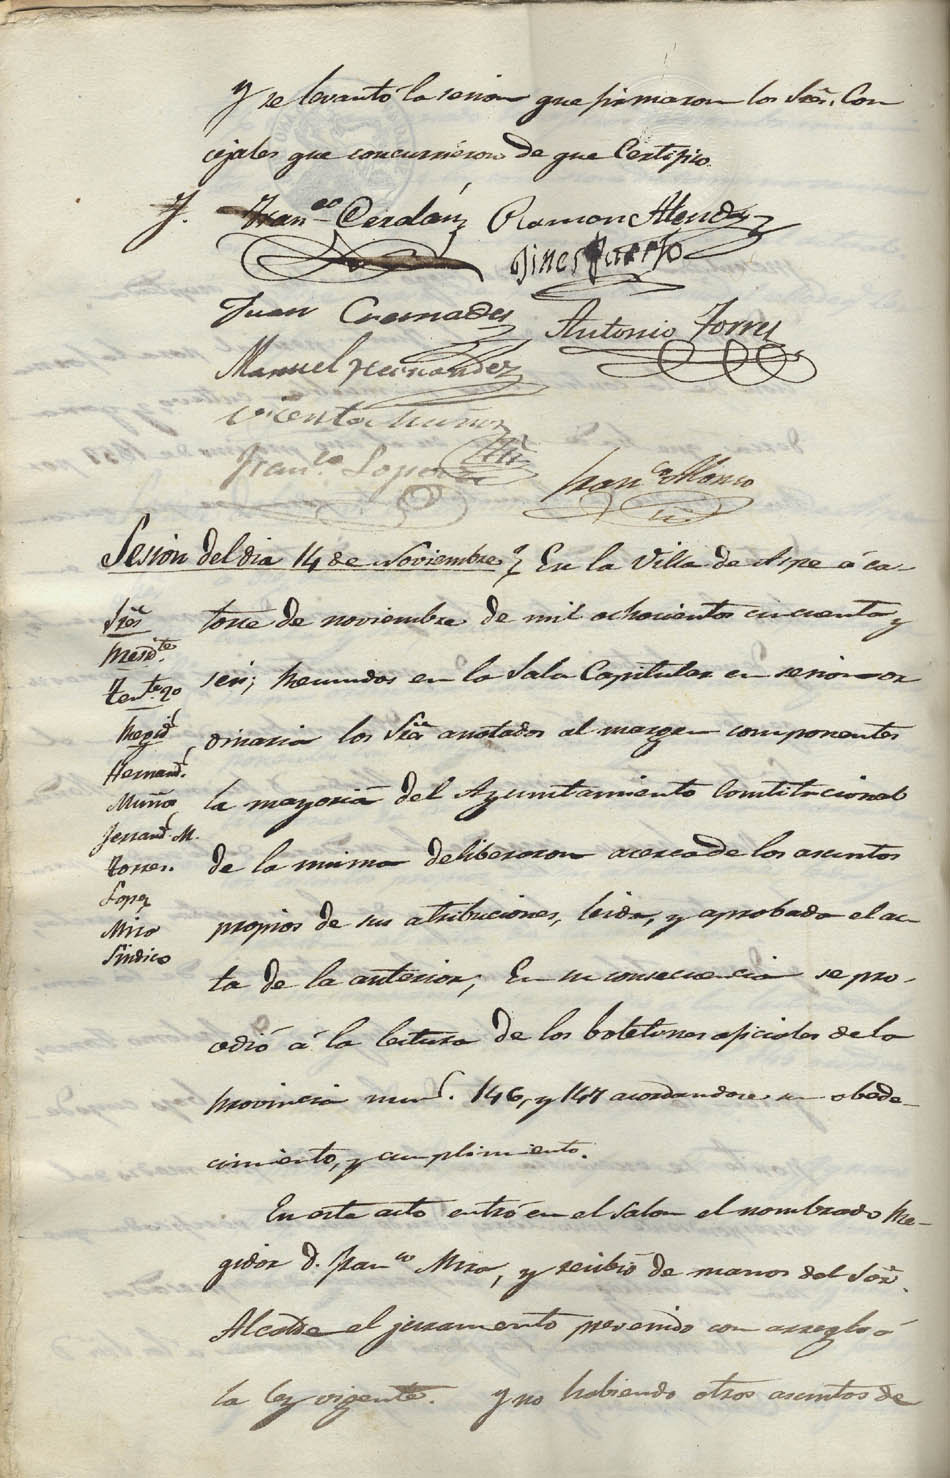 y se levantó la sesion que firmaron los Sres. Con
cejales que concurrieron de que Certifico.
Franco Cerdán Ramon Alenda
Gines Puerto
Juan Cremades Antonio Torres
Manuel Hernandez
Vicente Muñoz
Franco Lopez
Franco Alonso
Sesion del dia 14 de Noviembre En la Villa de Aspe á ca-
Sres
torce de noviembre de mil ochocientos cincuenta y
Presidte
seis; Reunidos en la Sala Capitular en sesion or
Tente 2o
Regid
dinaria los Sres anotados al margen componentes
Hernand
la mayoria del Ayuntamiento Constitucional
Muñoz
de la misma deliberaron acerca de los asuntos
Ferrand M.
Torres
Lopez
propios de sus atribuciones, leida, y aprobada el ac-
Miro
Sindico
ta de la anterior; En su consecuencia se pro-
cedió á la lectura de los boletines oficiales de la
Provincia num. 146, y 147 acordandose su obede-
cimiento, y cumplimiento.
En este acto entró en el Salon el nombrado Re-
gidor D. Franco Miro, y recibió de manos del Sor.
Alcalde el juramento prevenido con arreglo á
la ley vigente. Y no habiendo otros asuntos de